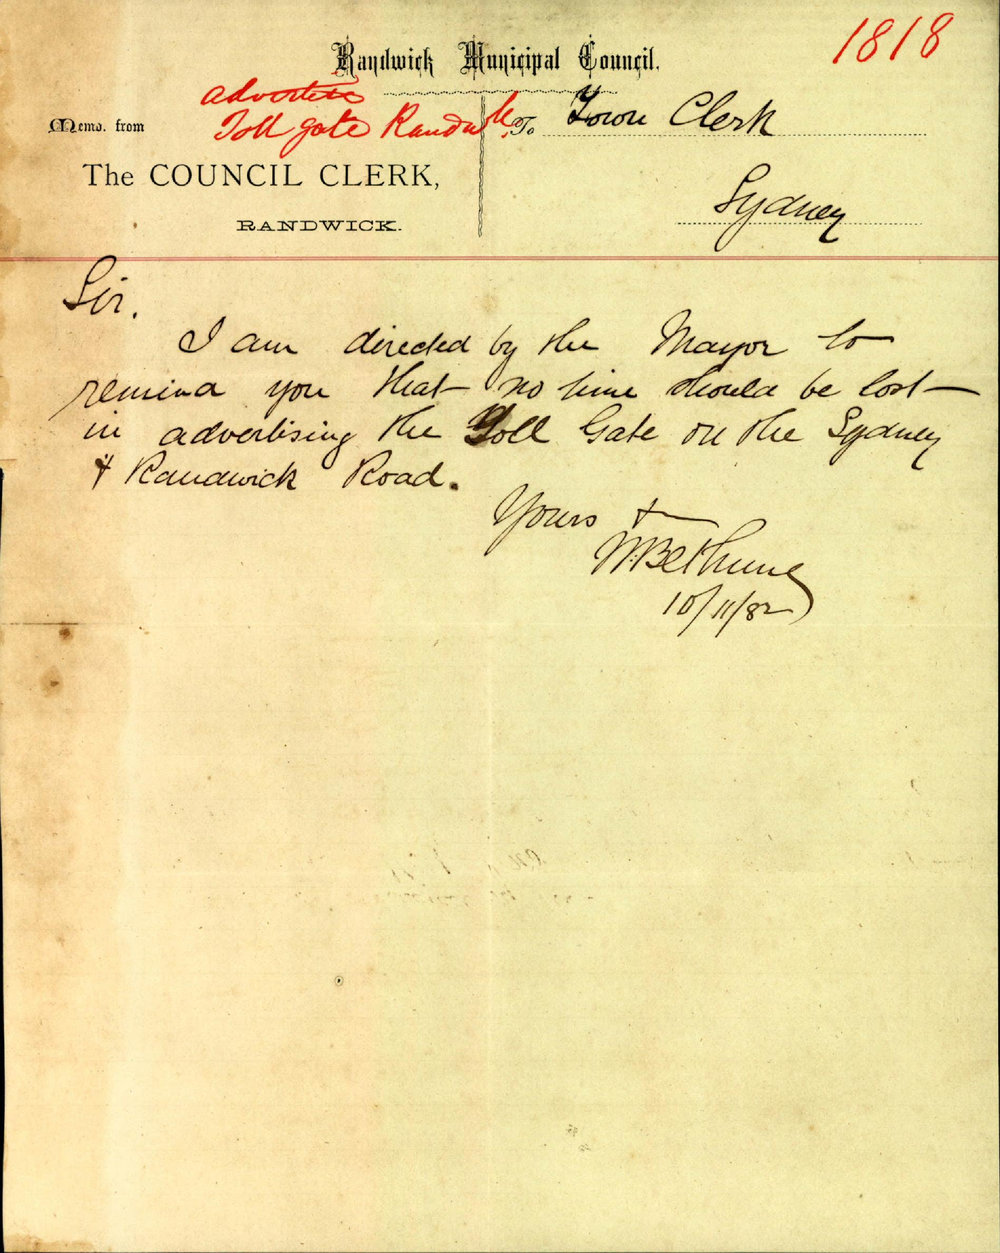 Randwick Municipal Council.
1818
advertise
Toll gate Randwick.
Memo. from
To Town Clerk
The COUNCIL CLERK,
Sydney
RANDWICK.
Sir.
I am directed by the Mayor to
remind you that no time should be lost
in advertising the Toll Gate on the Sydney
& Randwick Road.
Yours &
W. Bethune
10/11/82